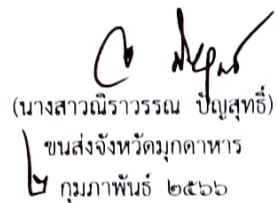 (นางสาวณิราวรรณ ปัญสุทธิ์)
ขนส่งจังหวัดมุกดาหาร
๒ กุมภาพันธ์ ๒๕๖๖